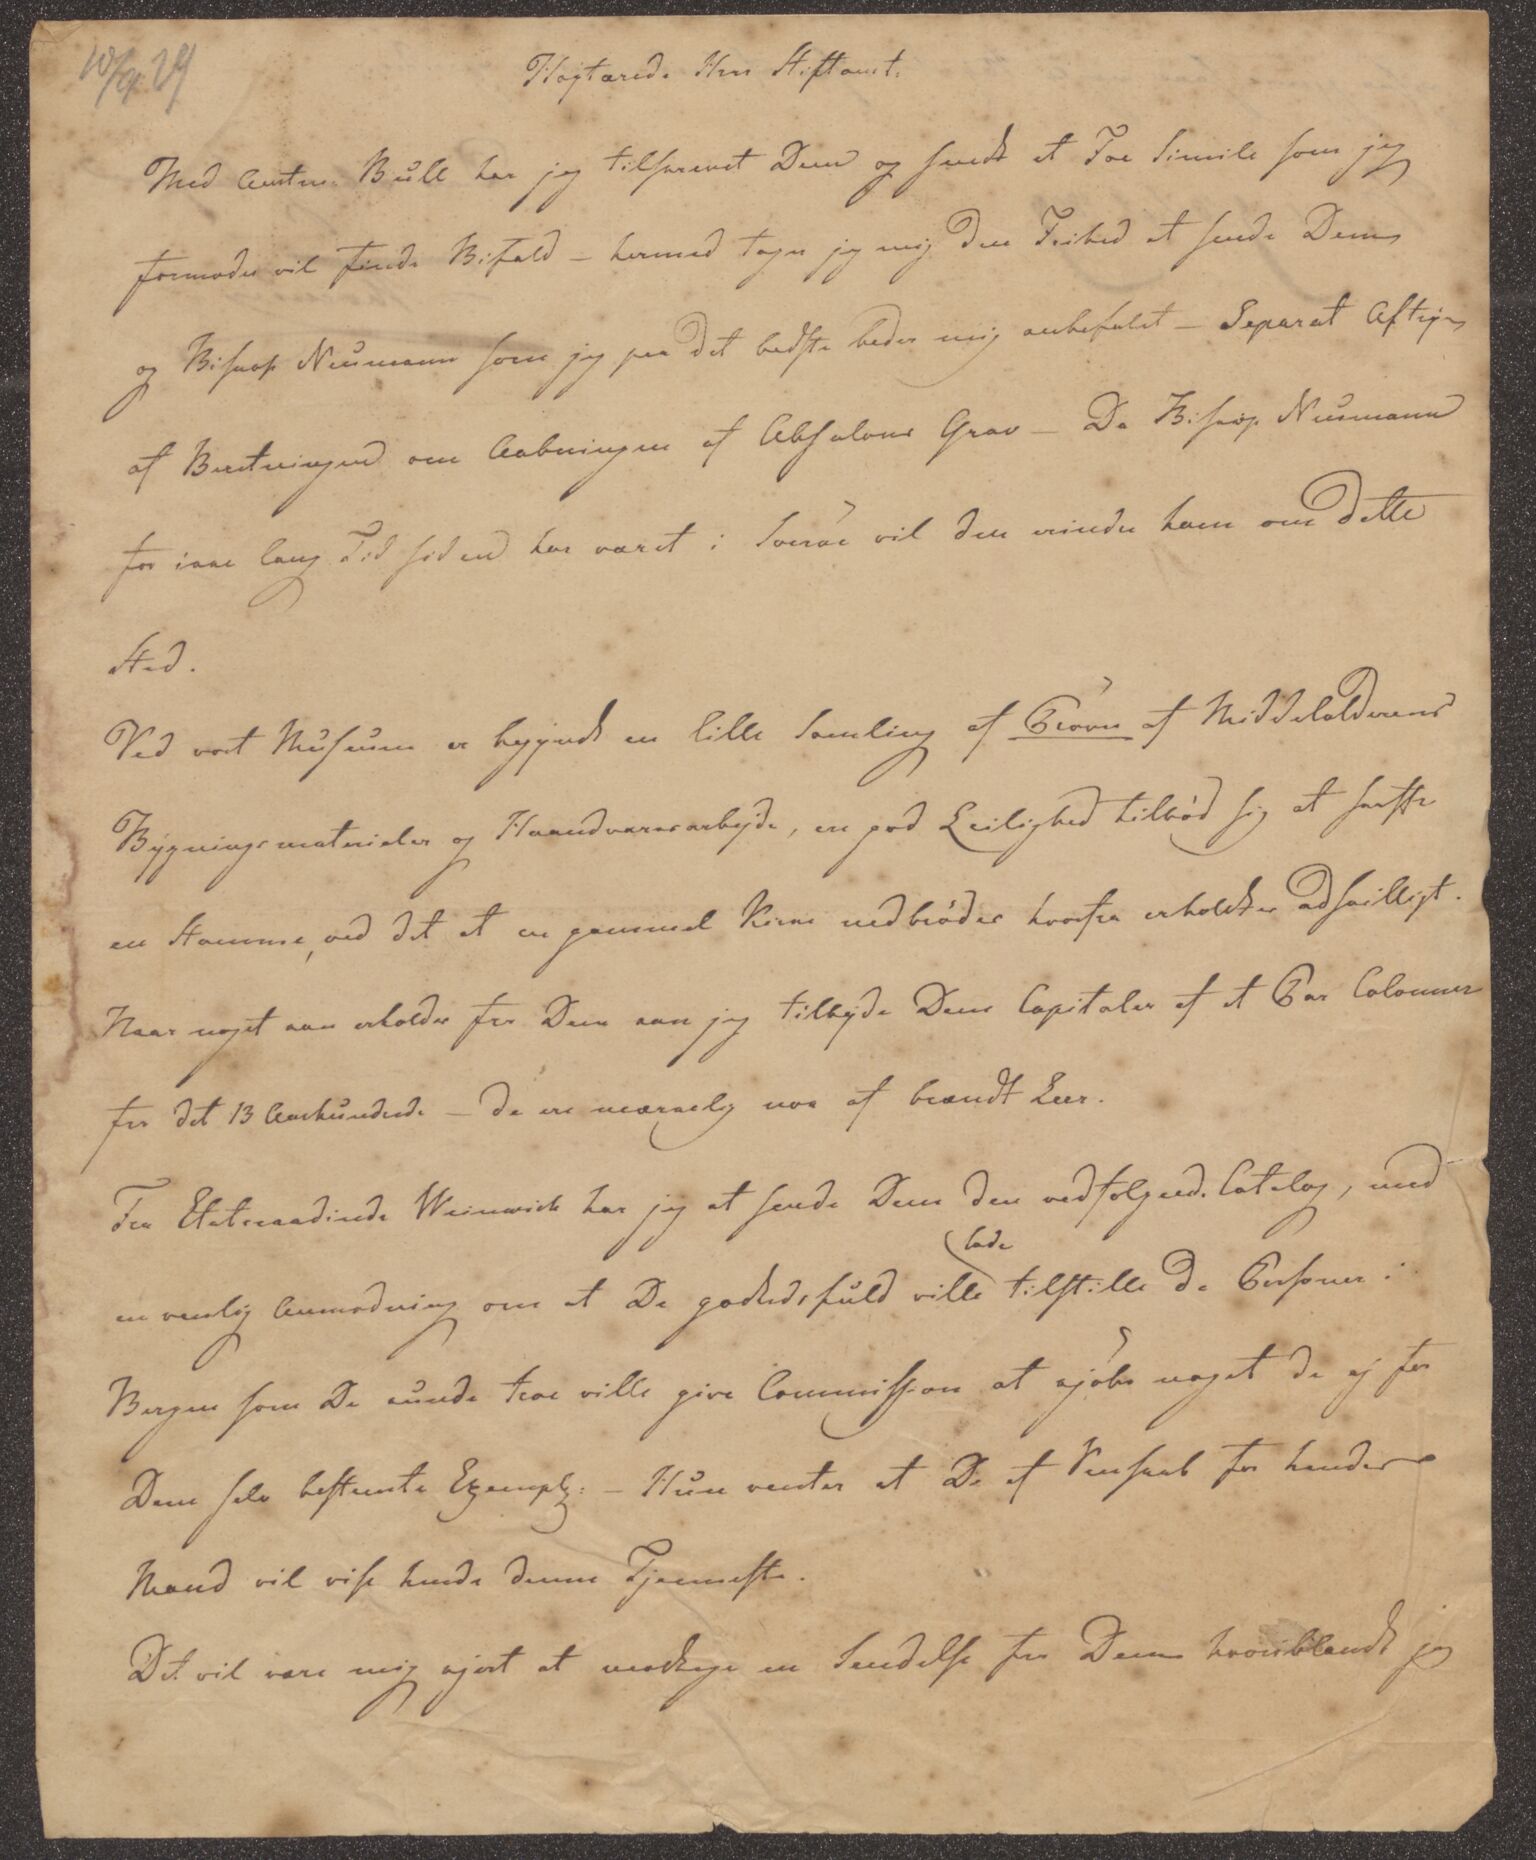 10/9.29
Høytærede Herr Stiftamt.
Med Amtm. Bull har jeg tilskrevet Dem og sendt et Fac Simile som jeg
formoder vil finde Bifald – hermed tager jeg mig den Frihed at sende Dem
og Biskop Neumann som jeg paa det bedste beder mig anbefalet – Separat Aftryk
af Beretningen om Aabningen af Absalons Grav – Da Biskop Neumann
for ikke lang Tid siden har været i Soröe vil den erindre ham om dette
Sted.
Ved vort Museum er begyndt en lille Samling af Pröver af Middelalderens
Bygningsmaterialer og Haandværksarbejde, en god Leilighed tilböd sig at skaffe
en Stamme, ved det at en gammel Kirke nedbrödes hvorfra erholdtes adskilligt.
Naar noget kan erholdes fra Dem kan jeg tilbyde Dem Capitaler af et Par Colonner
fra det 13 Aarhundrede – de ere mærkelig nok af brændt Leer.
Fra Etatsraadinde Weinwich har jeg at sende Dem den vedfølgende Catalog, med
lade
en venlig Anmodning om at De godhedsfuld ville tilstille de Personer i
Bergen som De kunde troe ville give Commission at kjöbe noget de ej for
Dem selv bestemte Exempl: – Hun venter at De af Venskab for hendes
Mand vil vise hende denne Tjenneste.
Det vil være mig kjert at modtage en Sendelse fra Dem hvoriblandt jeg